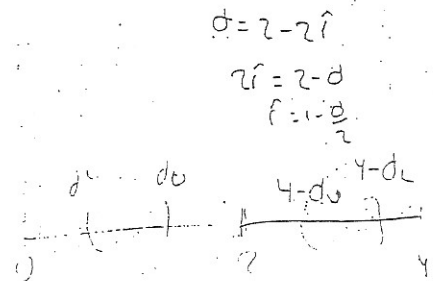 d = 2 - 2r̂
2r̂ = 2 - d
r̂ = 1 - d/2
dL dU 4-dU 4-dL
0 2 4